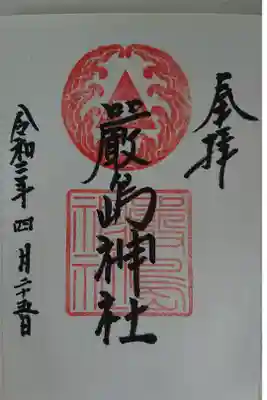 奉拝
嚴島神社
令和三年四月二十五日